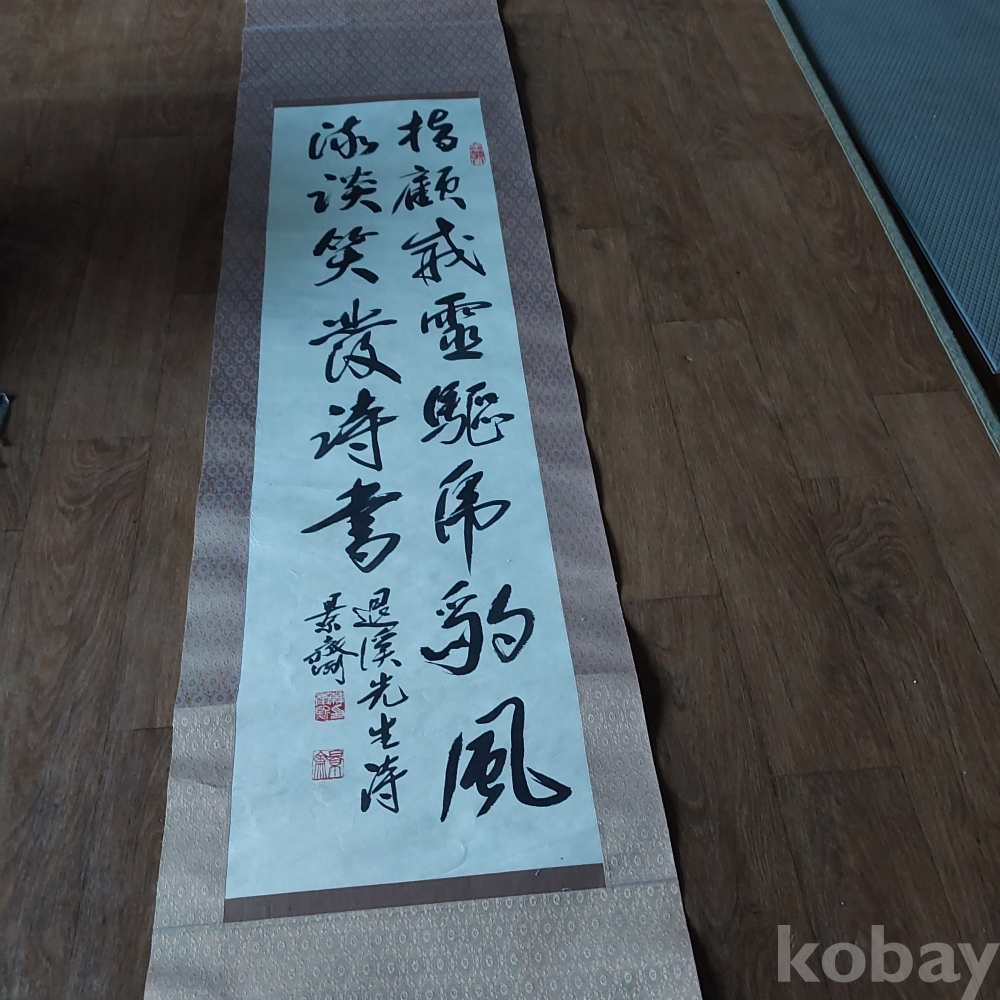 指顧威靈驅虎豹風
流談笑發詩書
退溪先生詩
景齋
kobay